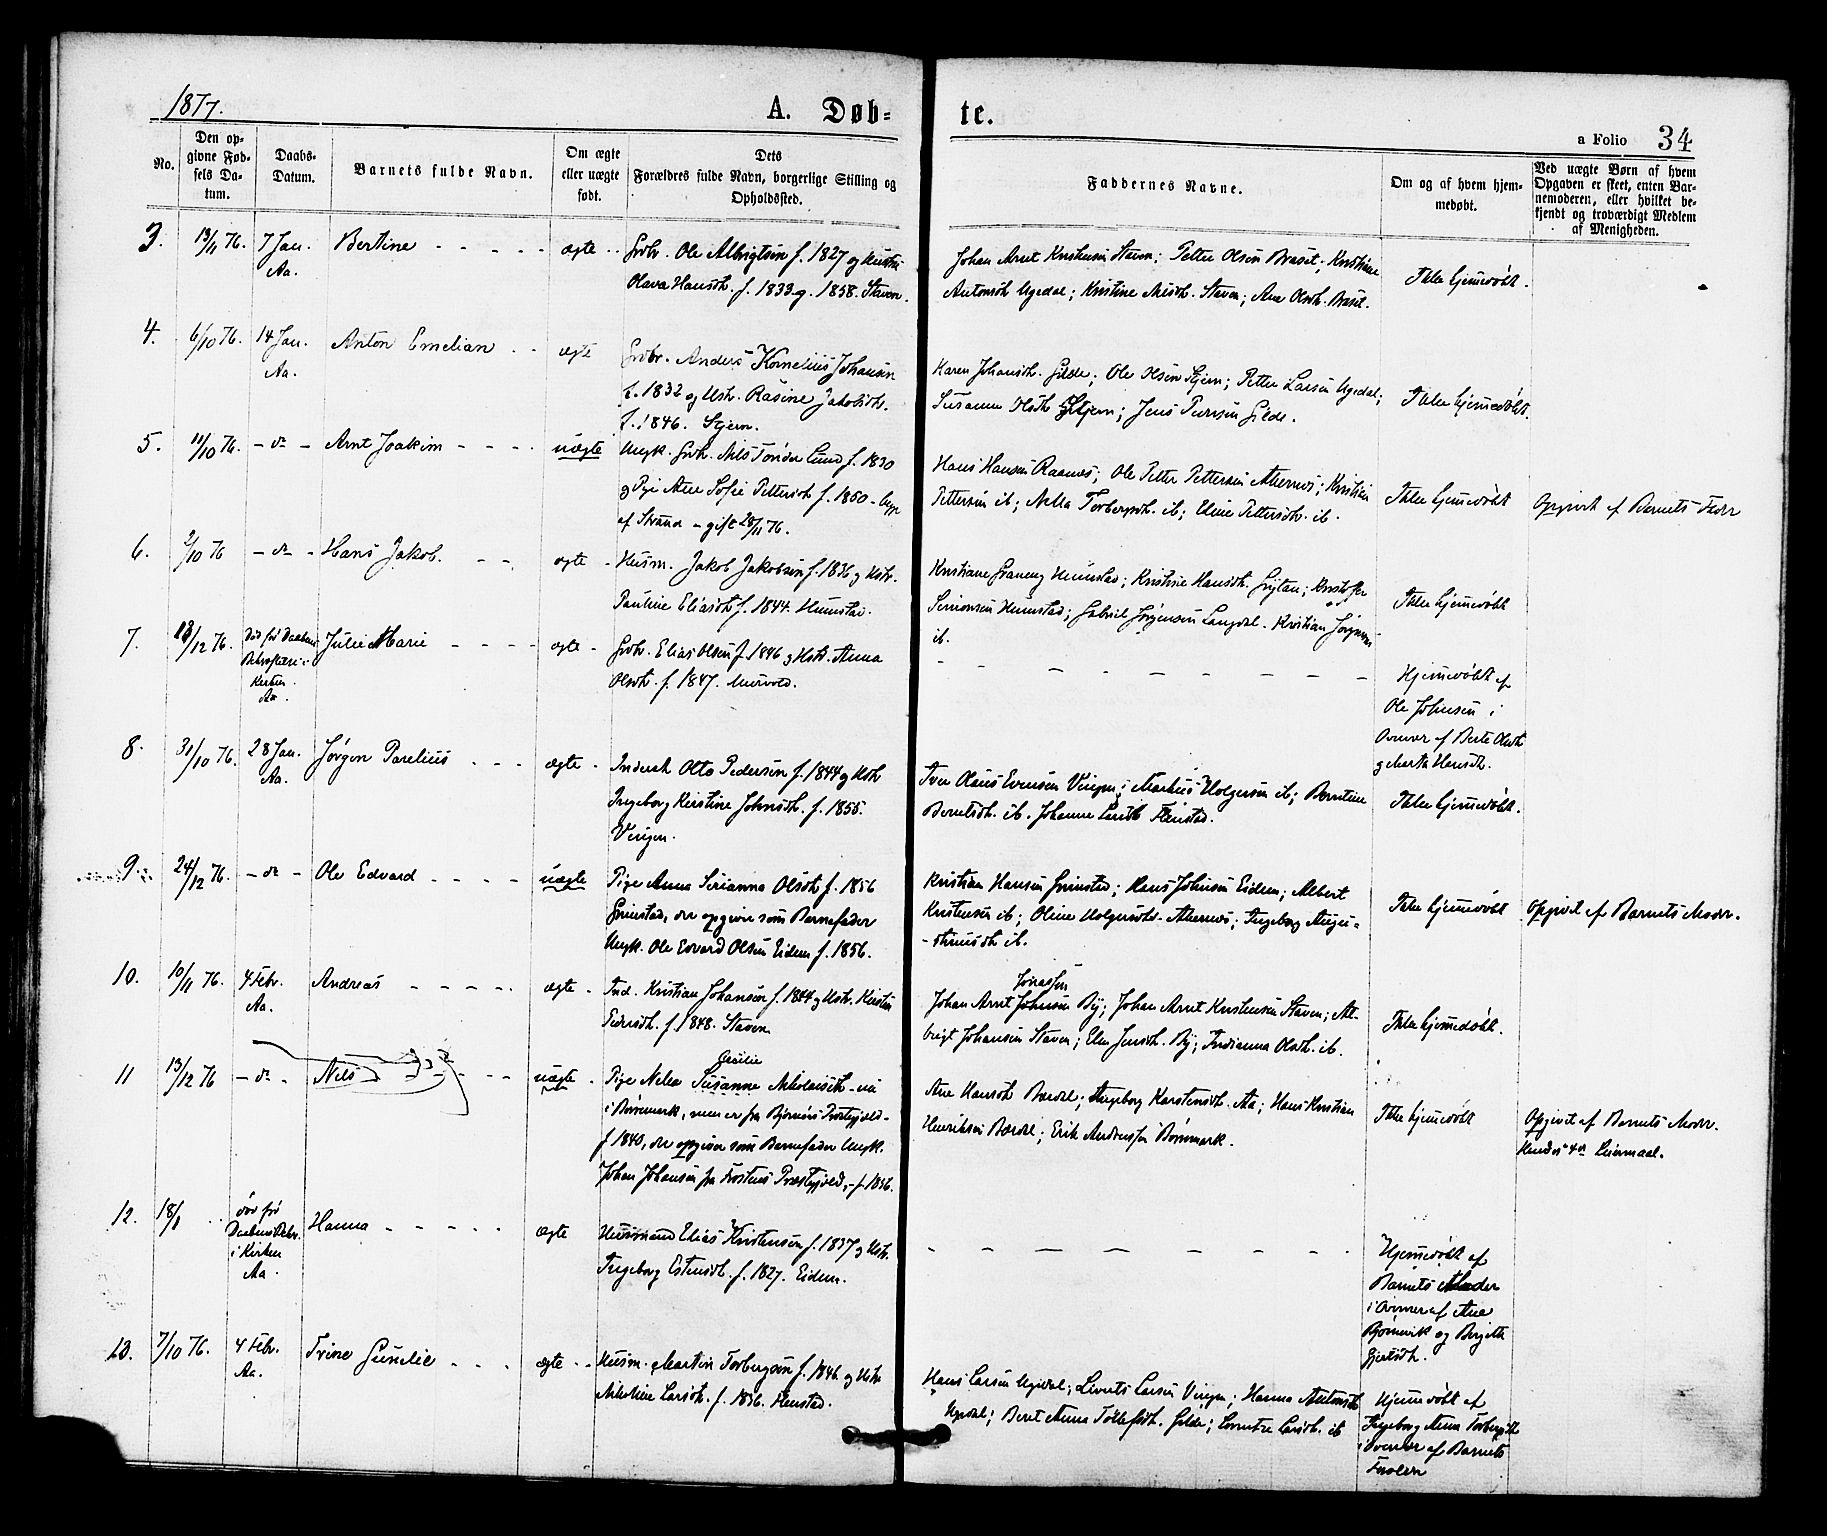 1877.
A. Døb-
te.
a Folio 34
No.
Den op-
givne Fød-
sels Da-
tum.
Daabs-
Datum.
Barnets fulde Navn.
Om ægte
eller uægte
født.
Dets
Forældres fulde Navn, borgerlige Stilling og
Opholdssted.
Faddernes Navne.
Om og af hvem hjem-
medøbt.
Ved uægte Børn af hvem
Opgaven er skeet, enten Bar-
nemoderen, eller hvilket be-
kjendt og troværdigt Medlem
af Menigheden.
3.
13/11 76.
7 Jan.
Aa.
Bertine
ægte
Grdbr. Ole Albrigtsen f. 1827 og Hustru
Olava Hansdt. f. 1833 g. 1858. Staven.
Johan Arnt Kristensen Staven; Petter Olsen Braset; Kristiane
Antonsdt Ugedal; Kristine Nilsdt. Staven; Ane Olsdt. Braset.
Ikke hjemmedøbt.
4.
6/10 76.
14 Jan.
Aa.
Anton Emelian
ægte
Grdbr. Anders Kornelius Johansen
f. 1832 og Hstr. Rasine Jakobsdt.
f. 1846. Stjern.
Karen Johansdt. Gilde; Ole Olsen Stjern; Petter Larsen Ugedal;
Susanna Olsdt. Stjern; Jens Petersen Gilde.
Ikke hjemmedøbt.
5.
11/10 76.
- do -
Arnt Joakim
uægte
Ungk. Grdbr. Nils Tønder Lund f. 1830
og Pige Ane Sofie Pettersdt f. 1850 - begge
af Strand - gift 28/11 76.
Hans Hansen Raanes; Ole Petter Pettersen Alternes; Kristian
Pettersen ib; Nella Torbergsdt. ib; Eline Pettersdt. ib.
Ikke hjemmedøbt
Opgivet af Barnets Fader
6.
2/10 76
- do -
Hans Jakob.
ægte
Husm. Jakob Jakobsen f. 1836 g Hstr.
Pauline Eliasdt f. 1844. Humstad.
Kristiane Graneng Humstad; Kristine Hansdt. Grytan; Kristofer
Simonsen Humstad; Gabriel Jørgensen Langdal. Kristian Jørgensen
ib.
Ikke hjemmedøbt
7.
13/12 76.
Død før Daabens
Bekræftelse i
Kirken.
Aa.
Julie Marie
ægte
Grdbr. Elias Olsen f. 1846 g Hstr. Anna
Olsdt. f. 1847.
Hjemmedøbt af
Ole Johnsen i
Overvær af Berte Olsdt
g Marta Hansdt.
8.
31/10 76.
28 Jan.
Aa.
Jørgen Parelius
ægte
Inderst Otto Pedersen f. 1844 g Hstr
Ingeborg Kirstine Johnsdt. f. 1855.
Viingen.
Iver Olaus Evensen Viingen; Markus Holgersen ib; Berntine
Berntsdt. ib. Johanna Larsdt. Flenstad.
Ikke hjemmedøbt.
9.
24/12 76.
- do -
Ole Edvard
uægte
Pige Anna Serianna Olsdt f. 1856
Grinstad, der opgiver som Barnefader
Ungk. Ole Edvard Olsen Eidem f. 1856.
Kristian Hansen Grinstad; Hans Johnsen Eidem; Albert
Kristensen ib; Oline Holgersdt. Alternes; Ingeborg Augu-
-stinusdt ib.
Ikke hjemmedøbt
Opgivet af Barnets Moder.
10.
10/11 76.
4 Febr.
Aa.
Andreas
ægte
Ind. Kristian Johansen f. 1844 g Hstr. Kirsten
Pedersdt. f. 1848. Staven
Jonassen
Johan Arnt Johnsen By; Johan Arnt Kristensen Staven; Al-
brigt Johansen Staven; Elen Jensdt. By; Indianna Olsdt. ib.
Ikke hjemmedøbt.
11
13/12 76
- do -
Nils
uægte
Cecilie
Pige Nella Susanne Nikolaisdt - nu
i Børmark, men er fra Bjørnørs Prestegjeld -
f 1840, der opgiver som Barnefader Ungk.
Johan Johansen fra Frostens Præstegjeld, - f. 1836.
Ane Hansdt Bredel; Ingeborg Karstensdt. Aa; Hans Kristian
Henriksen Bredel; Erik Andreassen Børmark.
Ikke hjemmedøbt
Opgivet af Barnets Moder.
Hendes 4de Leiermaal.
12.
18/1
død før
Daabens Bekr.
i Kirken
Aa.
Hanna
ægte
Husmand Elias Kristensen f. 1837 g Hstr.
Ingeborg Estensdt. f. 1827. Eidem.
Hjemmedøbt af
Barnets Moder
i Overvær af Ane
Bjørnevik og Birgitte
Gjertsdt.
13.
7/10 76.
4 Febr.
Aa.
Trine Gunelie
ægte
Husm. Martin Torbergsen f. 1846 og Hstr
Nikoline Larsdt. f. 1836. Flenstad.
Hans Larsen Ugedal; Sivert Larsen Viingen; Hanna Antonsdt
Ugedal; Beret Anna Tøllefsdt. Gilde; Lorentse Larsdt. ib
Hjemmedøbt af
Ingeborg Anna Torbergsdt
i Overvær af Barnets
Forældre